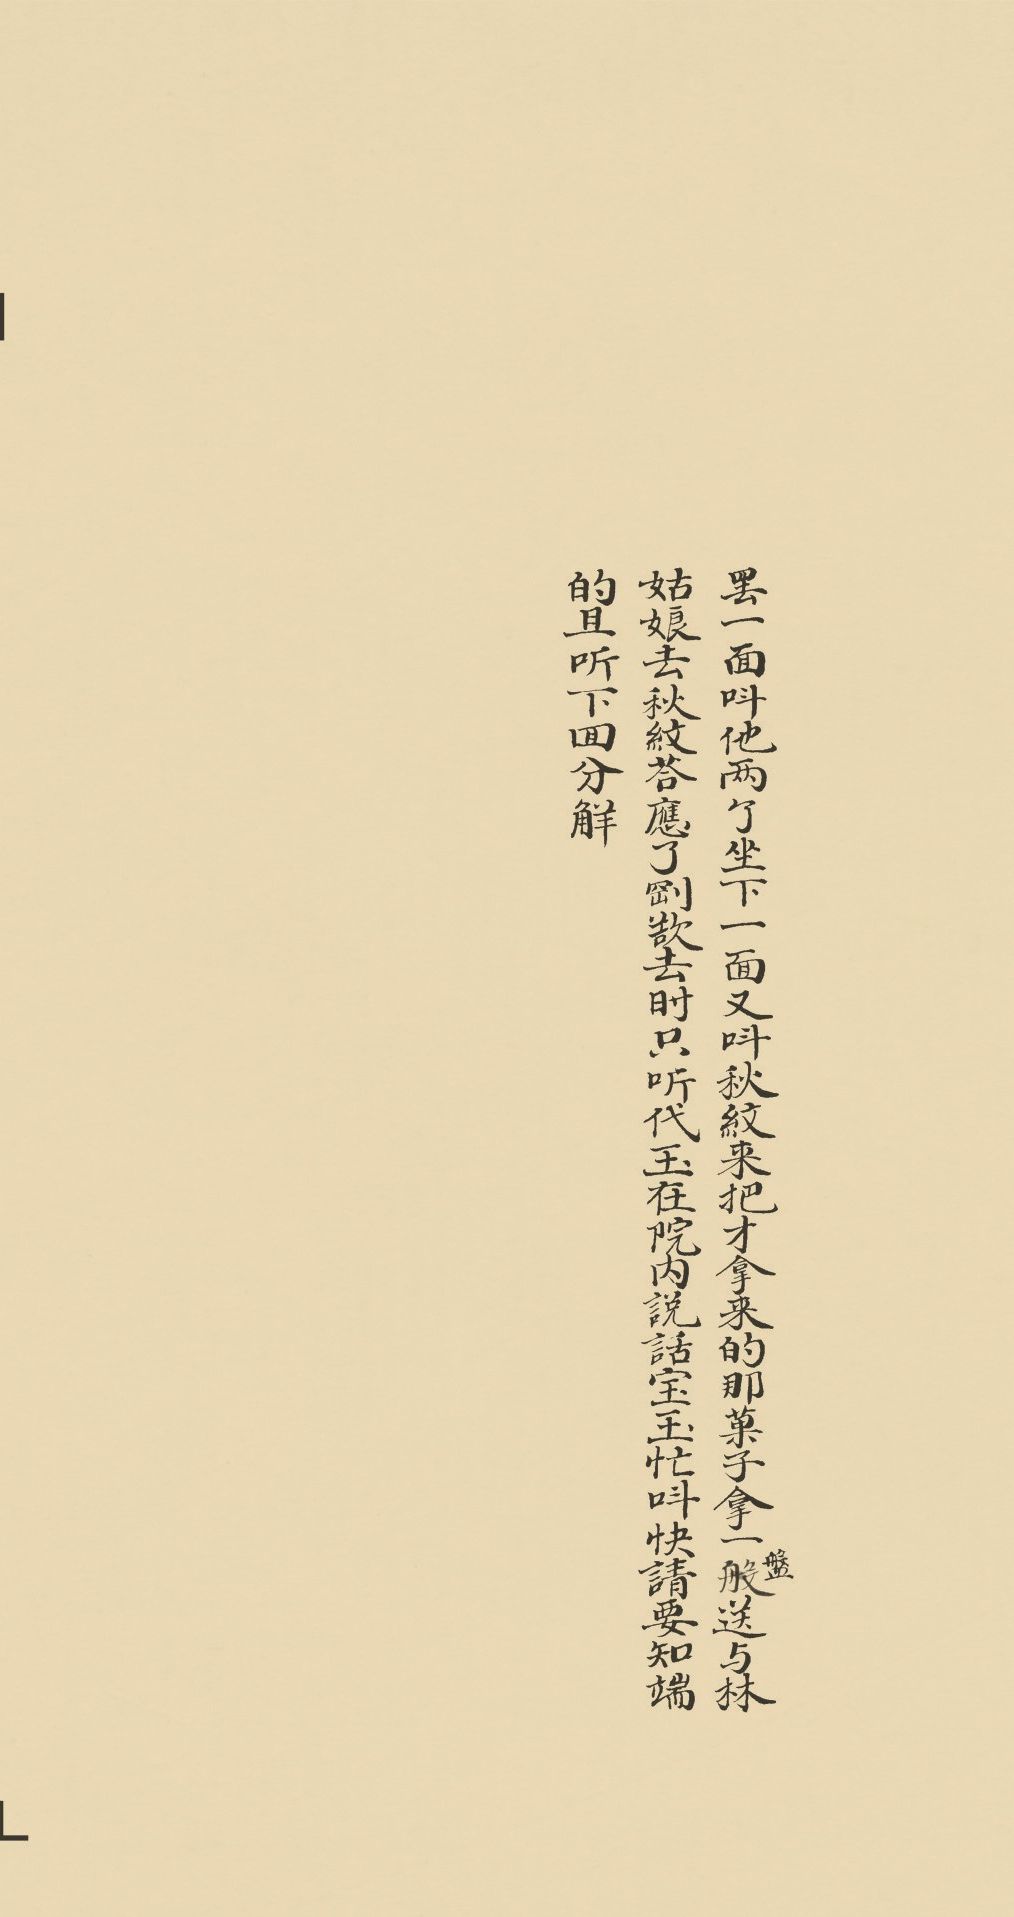 罢一面呌他两个坐下一面又呌秋紋来把才拿来的那菓子拿一般送与林
盤
姑娘去秋紋荅應了剛欲去时只听代玉在院内説話宝玉忙呌快請要知端
的且听下回分觧